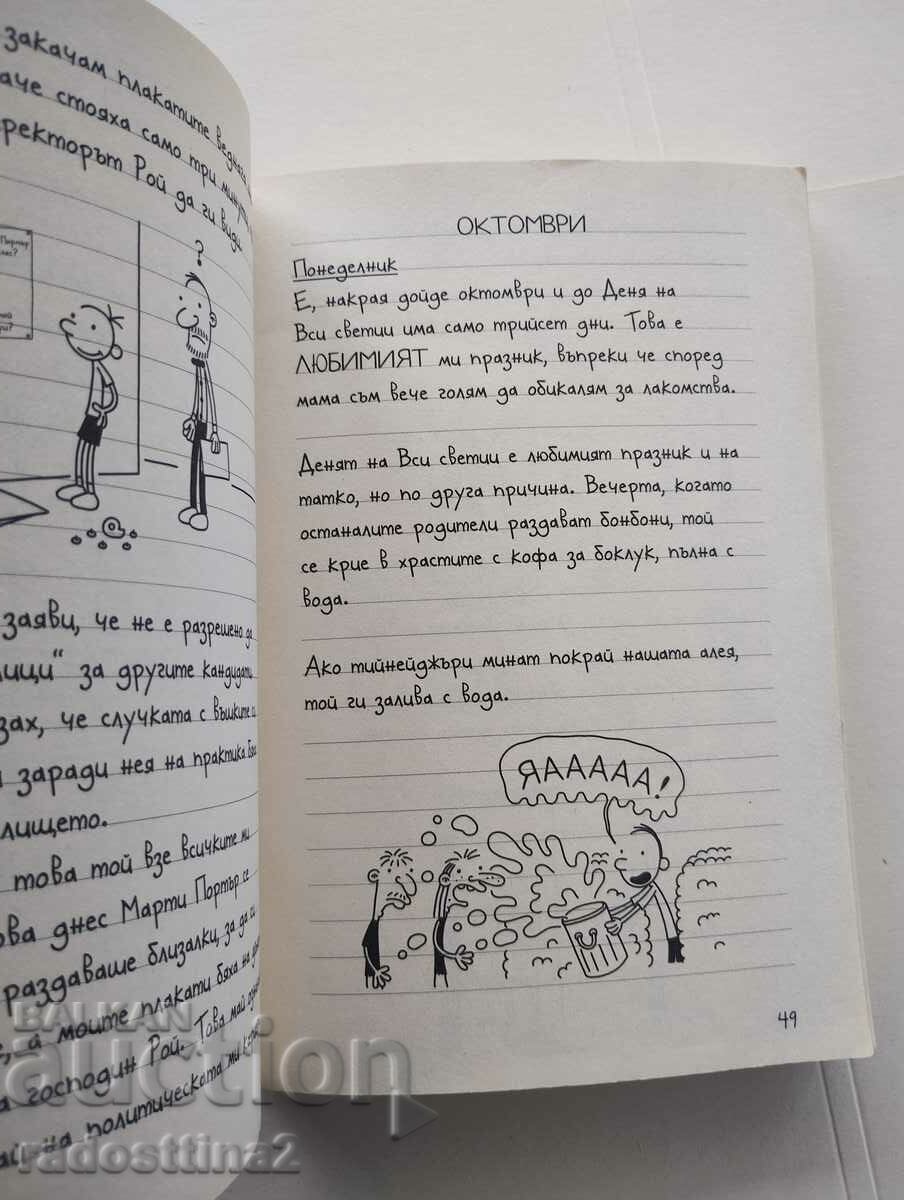 закачам плакатите веднага
аче стояха само три минути
ректорът Рой да ги види.
?
заяви, че не е разрешено да
лици“ за другите кандидати
зах, че случката с въшките
и заради нея на практика
лището.
това той взе всичките ми
ова днес Марти Портър се
раздаваше близалки, за да си
е, а моите плакати бяха на
а господин Рой. Това май
на политическата ми
ОКТОМВРИ
Понеделник
Е, накрая дойде октомври и до Деня на
Вси светии има само трийсет дни. Това е
ЛЮБИМИЯТ ми празник, въпреки че според
мама съм вече голям да обикалям за лакомства.
Денят на Вси светии е любимият празник и на
татко, но по друга причина. Вечерта, когато
останалите родители раздават бонбони, той
се крие в храстите с кофа за боклук, пълна с
вода.
Ако тийнейджъри минат покрай нашата алея,
той ги залива с вода.
ЯААААА!
49
BALKAN
auction
radosttina2